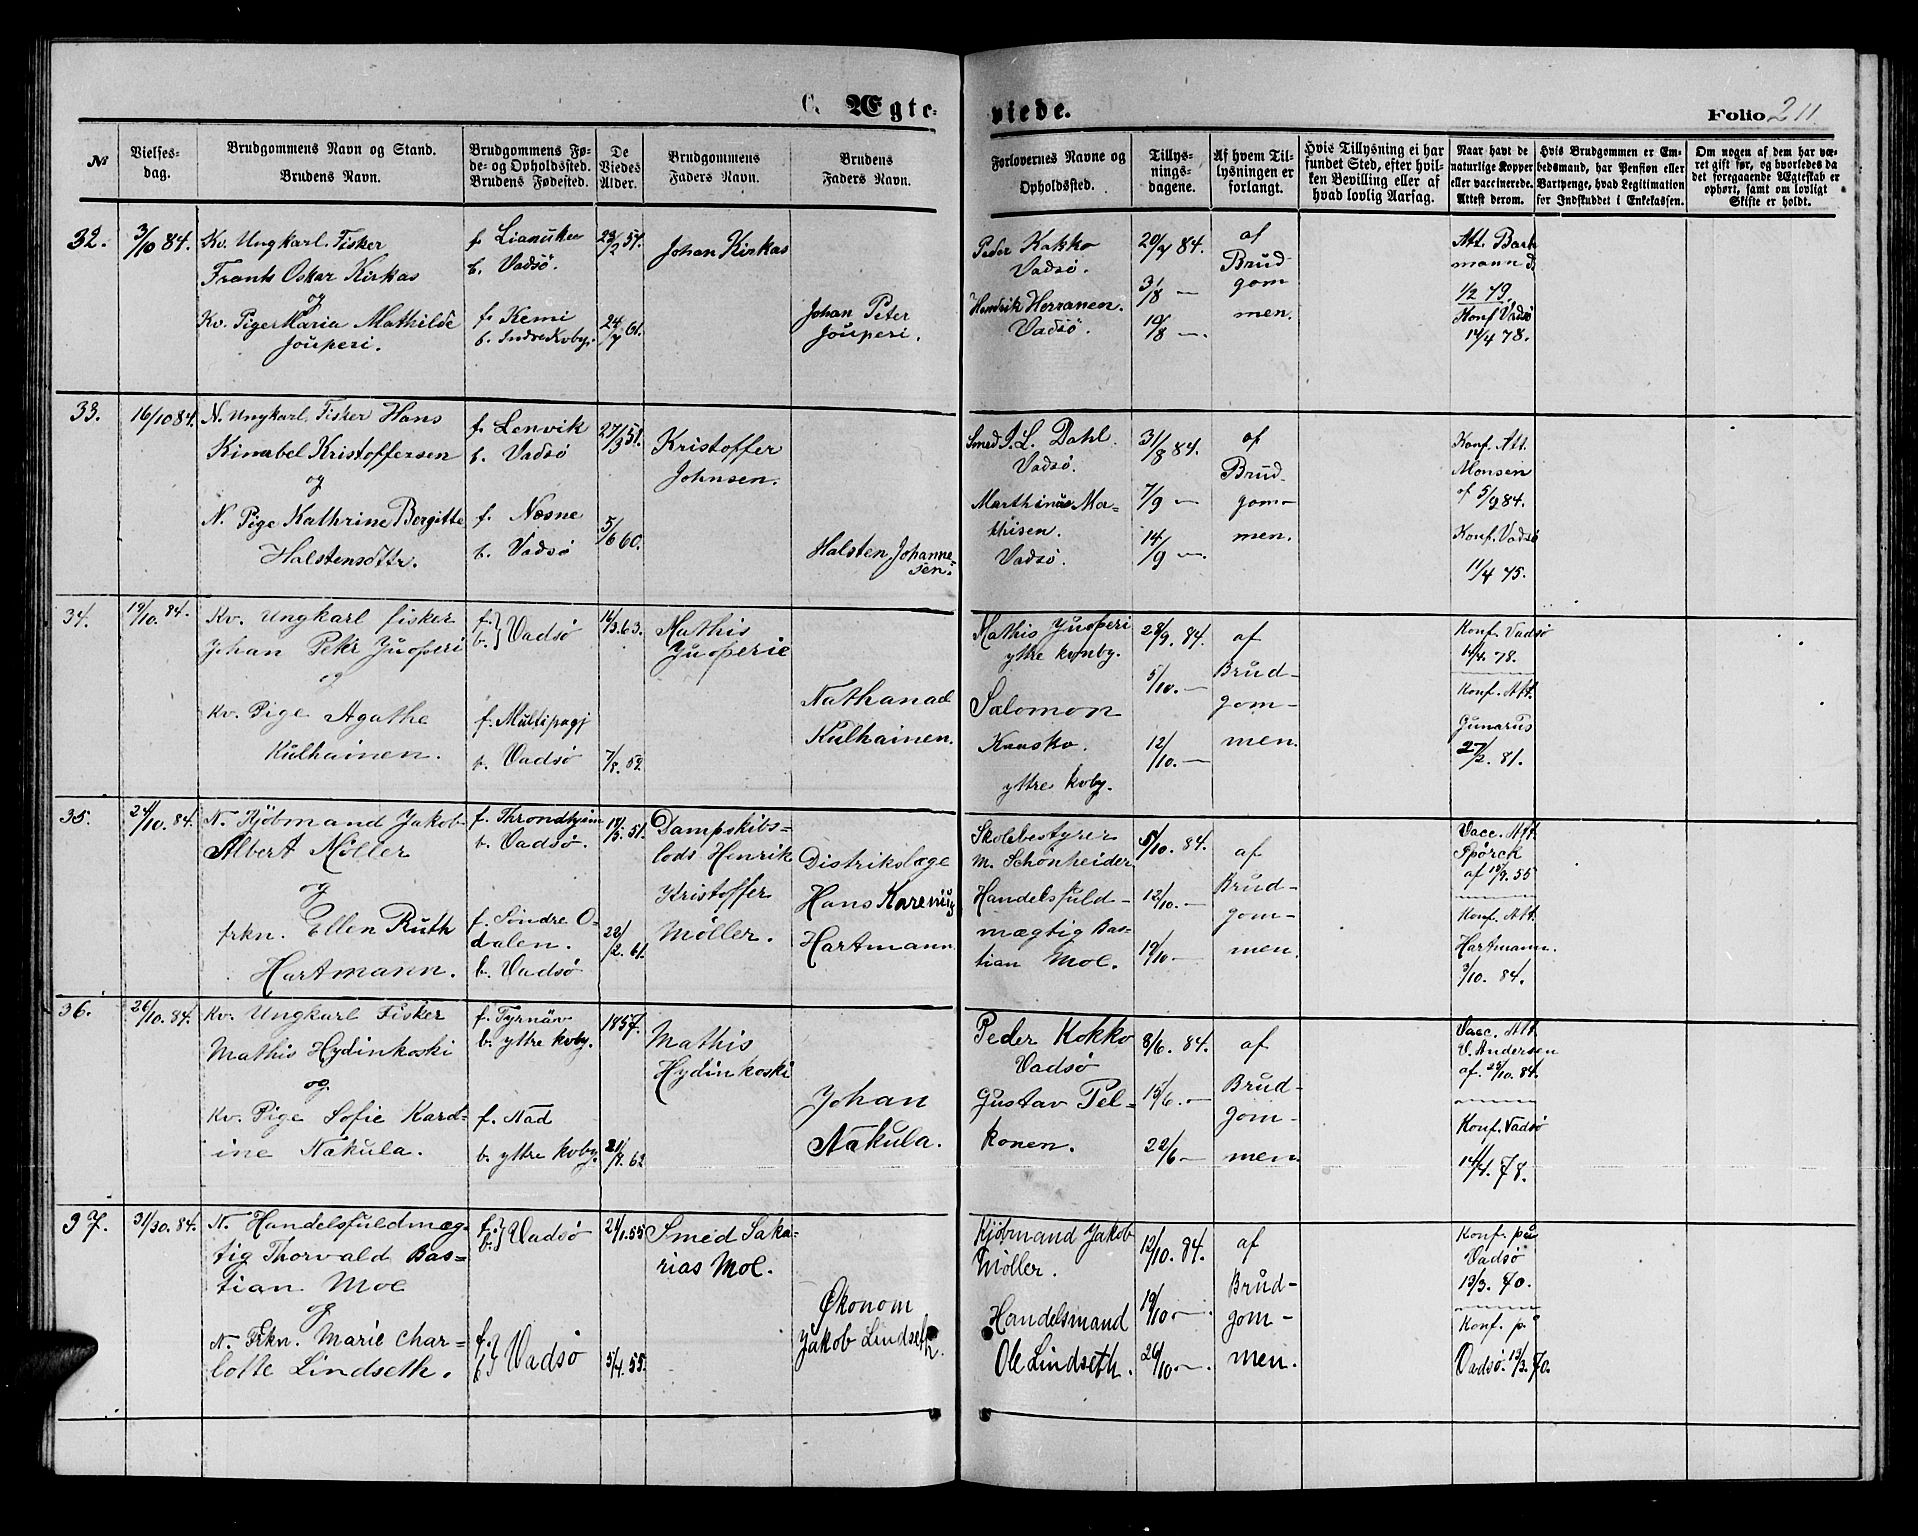 C. Ægte-
viede.
Folio 211.
No
Vielses-
dag.
Brudgommens Navn og Stand.
Brudens Navn.
Brudgommens Fø-
de- og Opholdssted.
Brudens Fødested.
De
Viedes
Alder.
Brudgommens
Faders Navn.
Brudens
Faders Navn.
Forlovernes Navne og
Opholdssted.
Tillys-
nings-
dagene.
Af hvem Til-
lysningen er
forlangt.
Hvis Tillysning ei har
fundet Sted, efter hvil-
ken Bevilling eller af
hvad lovlig Aarsag.
Naar havt de
naturlige Kopper
eller vaccinerede.
Attest derom.
Hvis Brudgommen er Em-
bedsmand, har Pension eller
Vartpenge, hvad Legitimation
for Indskuddet i Enkekassen.
Om nogen af dem har væ-
ret gift før, og hvorledes da
det foregaaende Ægteskab er
ophørt, samt om lovligt
Skifte er holdt.
32.
3/10 84.
Kv. Ungkarl. Fisker
Frants Oskar Kirkas
og
Kv. Pige Maria Mathilde
Jouperi.
f.
b. Vadsø.
f. Kemi
b. Indre Kvby.
24/7 61.
Johan Kirkas
Johan Peter
Jouperi.
Peder Kokko
Vadsø.
Hendrik Herranen.
Vadsø.
20/7 84.
3/8 —
10/8 —.
af
Brud-
gom
men.
Att. Bach
mann
1/2 79.
Konf. Vadsø
14/4 78.
33.
16/10 84.
N. Ungkarl. Fisker Hans
Kinabel Kristoffersen
og
N. Pige Kathrine Bergitte
Halstensdttr.
f. Lenvik
b. Vadsø
f. Nesne
b. Vadsø
27/3 51.
5/6 60.
Kristoffer
Johnsen.
Halsten Johanne-
sen.
Smed J. L. Dahl.
Vadsø.
Marthinus Ma-
thisen.
Vadsø.
31/8 84.
7/9 —
14/9 —.
af
Brud-
gom-
men.
Konf. Att.
Monsen
af 5/9 84.
Konf. Vadsø
11/4 75.
34.
19/10. 84.
Kv. Ungkarl fisker
Johan Petr Juoperi
og
Kv. Pige Agathe
Kulhainen.
f. b.} Vadsø
f. Multipagj
b. Vadsø
16/3. 63.
7/8. 52.
Mathis
Juoperie
Nathanael
Kulhainen.
Mathis Juoperi
yttre kvnby.
Salomon
yttre kvby.
28/9. 84.
5/10. —
12/10. —
af
Brud-
gom-
men.
Konf. Vadsø
14/4. 78.
Konf. Att.
Gunarus
27/2. 81.
35.
24/10. 84.
N. Kjöbmand Jakob
Albert Möller
og
frkn. Ellen Ruth
Hartmann.
f. Throndhjem
b. Vadsø.
f. Söndre O-
dalen.
b. Vadsø
18/5. 51.
22/2. 61.
Dampskibs-
lods Henrik
Kristoffer
Møller.
Distrikslæge
Hans Karenius
Hartmann
Skolebestyrer
M. Schönheider
Handelsfuld-
mægtig Bas-
tian Moe.
5/10. 84.
12/10. —
19/10 —
af
Brud-
gom-
men.
Vacc. Att.
Spörck
af 18/9. 55
Konf. Att.
Hartmann.
3/10. 84.
36.
26/10. 84.
Kv. Ungkarl Fisker
Mathis Hydinkoski
og
Kv. Pige Sofie Karo-
ine Nakula.
f. Tyrnäv
b. yttre kvby.
f. Nad
b. yttre kvby.
1857.
21/7. 62
Mathis
Hydinkoski
Johan
Nakula.
Peder Kokko
Vadsø
Gustav Pel-
konen.
8/6. 84.
15/6. —
22/6 —
af
Brud-
gom-
men.
Vacc. Att.
V. Andersen
af. 25/10. 84.
Konf. Vadsø
14/4. 78.
37.
31/30. 84.
N. Handelsfuldmæg-
tig Thorvald Bas-
tian Moe
og
N. Frkn. Marie Char-
lotte Lindseth.
f. b.} Vadsø
f. b.} Vadsø
24/1. 55
5/4. 55.
Smed Saka-
rias Moe.
Økonom
Jakob Lindseth.
Kjöbmand Jakob
Møller.
Handelsmand
Ole Lindseth.
12/10. 84.
19/10 —.
26/10 —.
af
Brud-
gom-
men.
Konf. på
Vadsø
13/3. 70.
Konf. på
Vadsø. 13/3. 70.